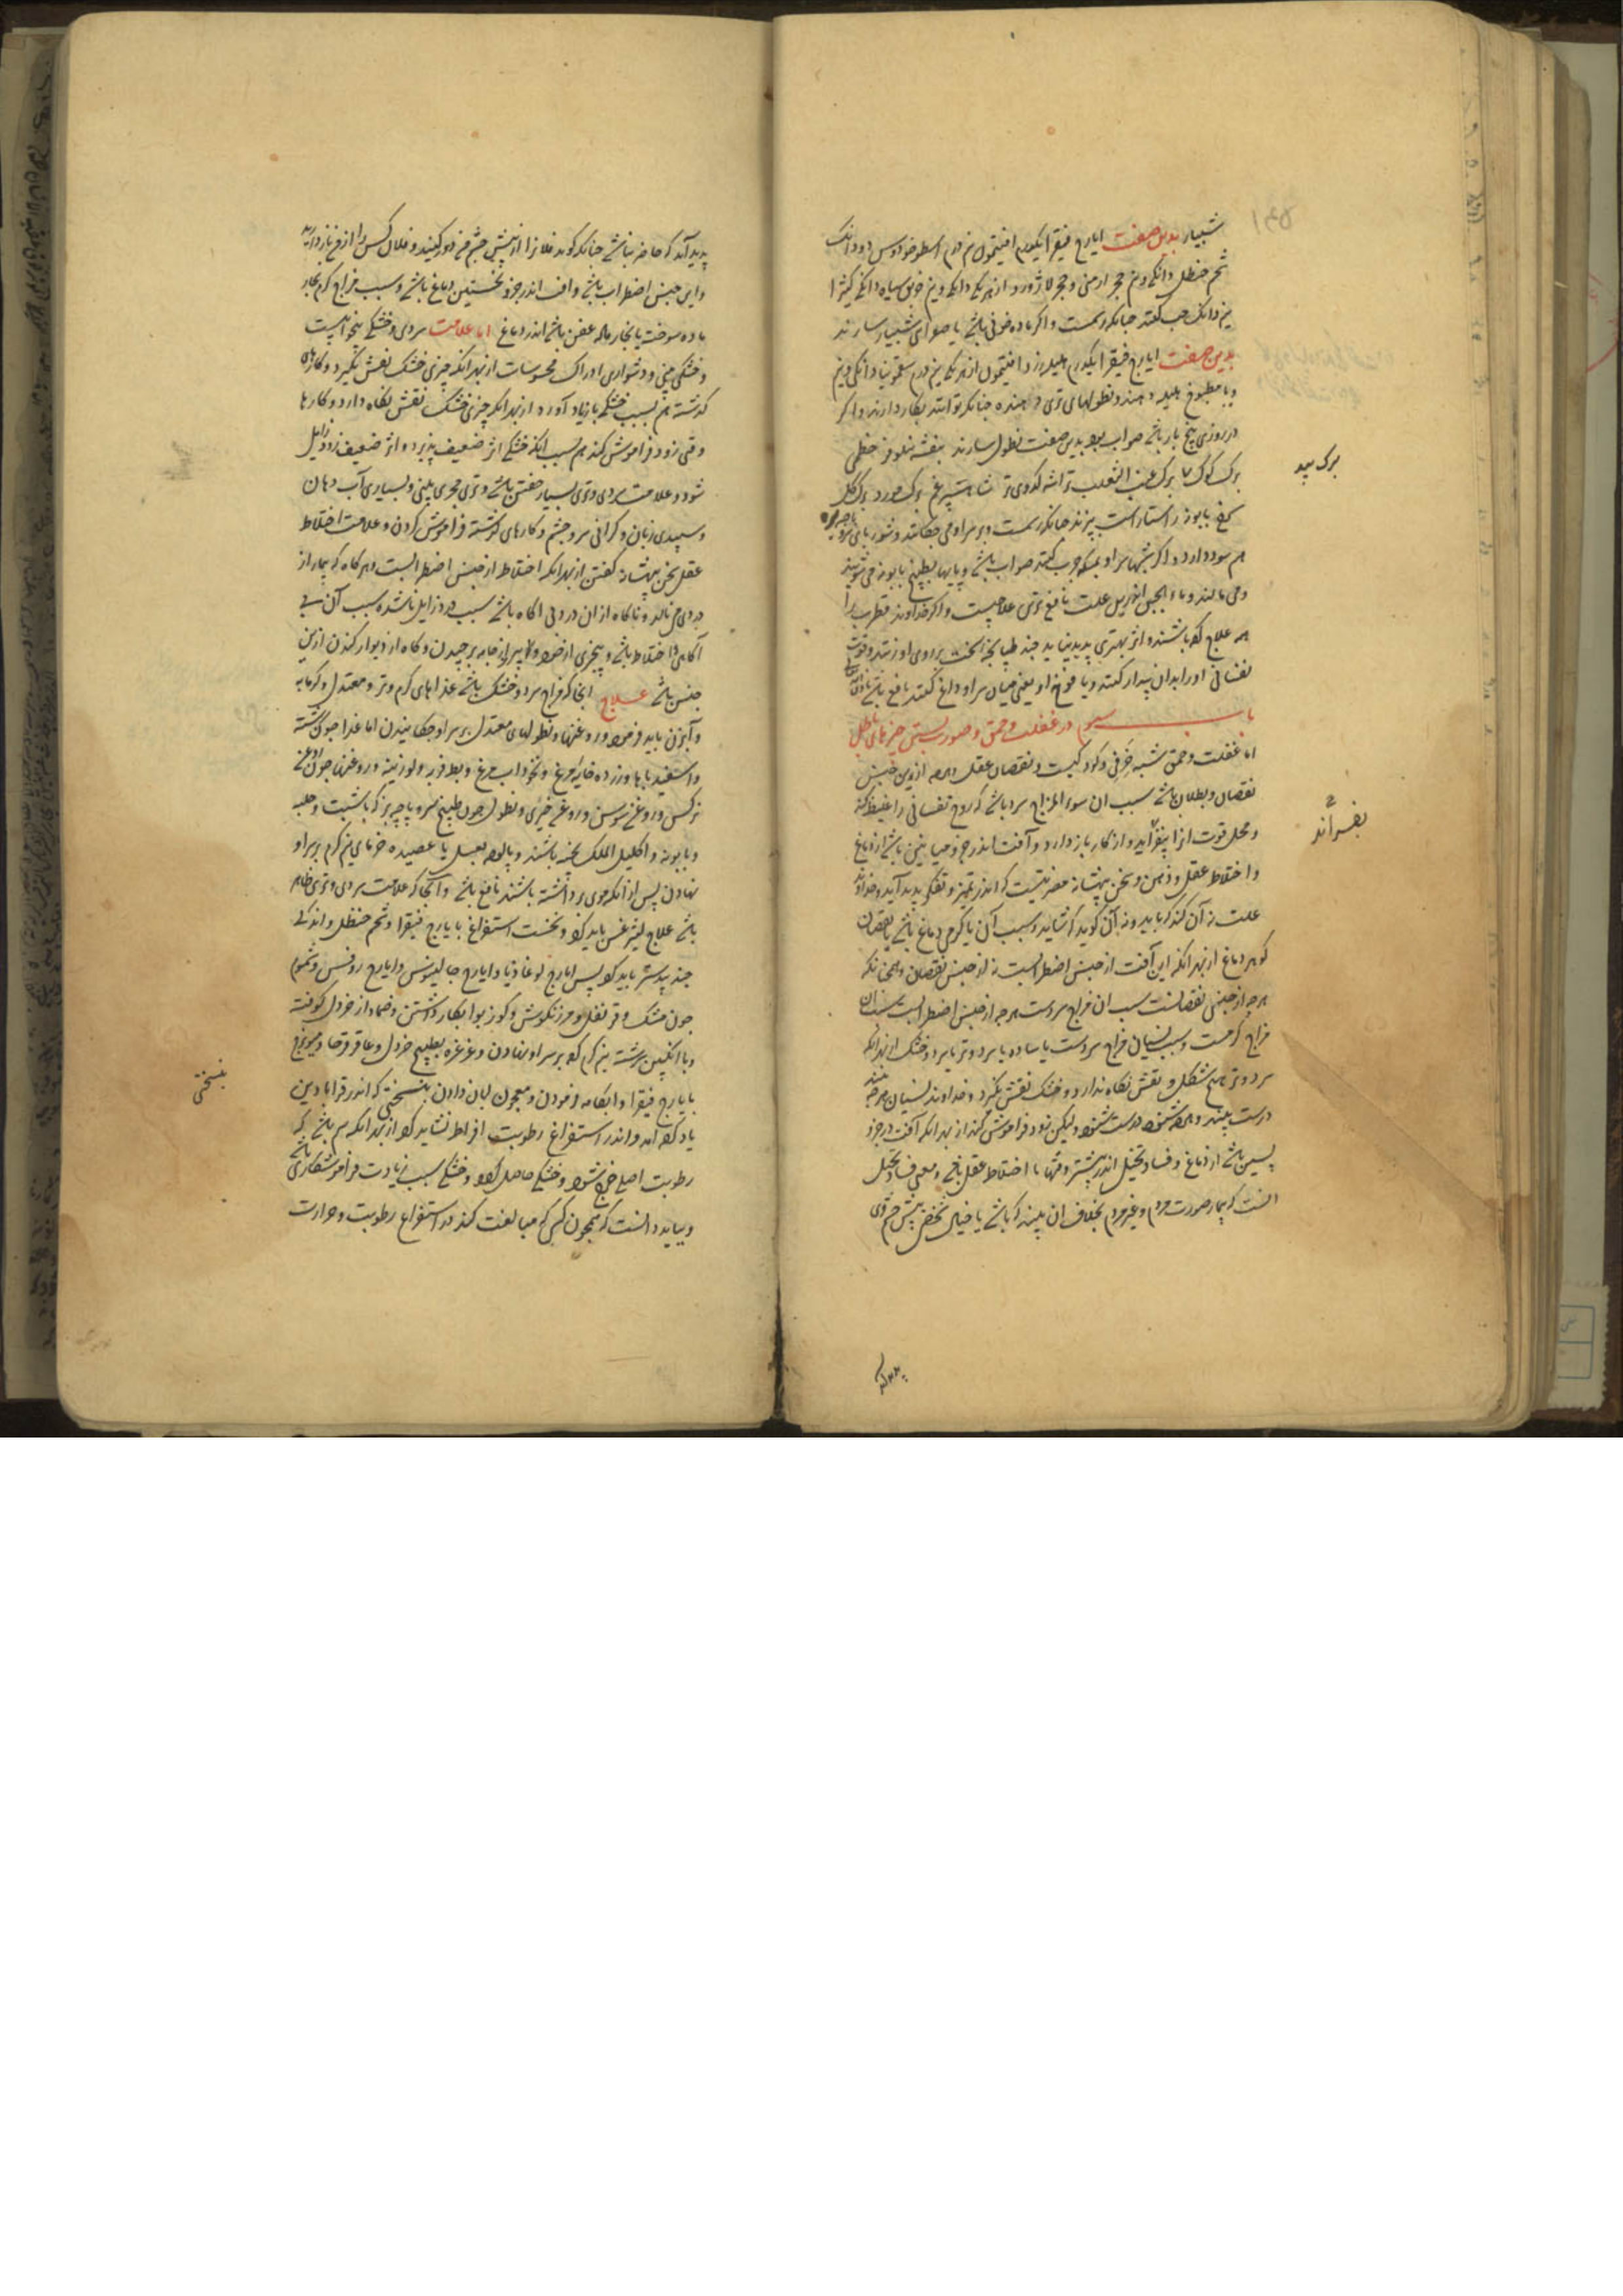 شبیار بدین صفت ایارج فیقرا یکدرم افتیمول نیم درم اسطوخودوس دو دانک
شحم حنظل دانکی و نیم حجر ارمنی و حجر لاژورد از هر یکی دانکی و نیم خربق سیاه دانکی کتیرا
نیم دانک حب کنند جنانکه رسمست و اکر ماده خونی باشد یا صفراوی شبیار سازند
بدین صفت ایارج فیقرا یکدرم هلیله زرد افتیمول از هر یکی نیم درم سقمونیا دانکی و نیم
و با مطبوخ هلیله دهند و نطولهای تری دهنده جنانکه توانند بکار دارند و اکر
در روزی پنج بار باشد صواب بود بدین صفت نطول سازند بنفشه نیلوفر خطمی
برک کوک برک عنب الثعلب تراشه کدوی تر شاهسپرغم برک مورد برک کل
برک بید
کفی بابونه راستاراست بپزند جنانکه رسمست و بر سر او می جکانند و شوربای سر و پاچه بره
هم سود دارد و اکر شبها سر او بمسکه جرب کنند صواب باشد و پایها بطبیخ بابونه می شویند
و می مالند و ماء الجبن اندرین علت نافع ترین علاجیست و اکر خداوند قطرب را
همه علاج کرده باشند و اثر بهتری پدید نیاید جند طپانجه سخت بر روی او زنند و قوت
نفسانی او را بدان بیدار کنند و یا فوخ او یعنی میان سر او داغ کنند نافع باشد
باب سیوم در غفلت و حمق و صورت بستن چیزهای باطل
اما غفلت و حمق شبه خرفی و کودکیست و نقصان عقل و هرچه ازین جنس
نقصان و بطلان باشد سبب ان سوء المزاج سرد باشد که روح نفسانی را غلیظ کند
و محل قوت انرا بفسراند و از کار باز دارد و آفت اندر جزو میانین باشد از دماغ
بفسراند
و اختلاط عقل و ذهن و سخن بیهشانه مضرتیست که اندر تمیز و تفکر پدید آید و خداوند
علت نه آن کند که باید و نه آن گوید که شاید و سبب آن یا کرمی دماغ باشد یا نقصان
کوهر دماغ از بهر آنکه این آفت از جنس اضطرابست نه از جنس نقصان و همجنانکه
هرجه از جنس نقصانست سبب ان مزاج سردست هرجه از جنس اضطرابست سبب ان
مزاج کرمست و سبب نسیان مزاج سردست یا ساده یا سرد و تر یا سرد و خشک از بهر آنکه
سرد و تر هیچ شکل و نقش نکاه ندارد و خشک نقش نکیرد و خداوند نسیان هرجه بیند
درست بیند و هرچه شنود درست شنود ولیکن زود فراموش کند از بهر آنکه آفت در جزو
پسین باشد از دماغ و فساد تخیل اندر بیشتر وقتها با اختلاط عقل باشد و معنی فساد تخیل
انست که بیمار صورت مردم و غیر مردم بخلاف ان بیند که باشد یا خیال شخصی پیش چشم وی
پدید آید که حاضر نباشد جنانکه کوید فلانرا از پیش چشم من دور کنید و فلان کس را از من باز دارید
و این جنس اضطراب باشد و آفت اندر جزو نخستین دماغ باشد و سبب مزاج کرم بخار
ماده سوخته یا بخار ماده عفن باشد اندر دماغ اما علامت سردی و خشکی بیخوابیست
و خشکی بینی و دشواری ادراک محسوسات از بهر آنکه چیزی خشک نقش نکیرد و کارهای
کذشته هم بسبب خشکی باز یاد آورد از بهر آنکه چیزی خشک نقش نکاه دارد و کارها
وقتی زود فراموش کند هم بسبب آنکه خشکی اثر ضعیف پذیرد و اثر ضعیف زود زایل
شود و علامت سردی و تری بسیار خفتن باشد و تری مجری بینی و بسیاری آب دهان
و سپیدی زبان و کرانی سر و چشم و کارهای کذشته فراموش کردن و علامت اختلاط
عقل سخن بیهشانه کفتن از بهر آنکه اختلاط از جنس اضطرابست و هرکاه که بیمار از
دردی می نالد و ناکاه از ان درد بی آکاه باشد سبب درد زایل ناشده سبب آن بی
آکاهی اختلاط باشد و بیخبری از خود و از پیراهن جامه برچیدن و کاه از دیوار کندن ازین
جنس باشد علاج انجا که مزاج سرد و خشک باشد غذاهای کرم و تر و معتدل و کرمابه
و آبزن باید فرمود و روغنها و نطولهای معتدل بر سر او جکانیدن اما غذا جون
و اسفیدباها و زرده خایه مرغ و نخوداب مرغ و بط فربه و لوزینه و روغنها جون روغن
نرکس و روغن سوسن و روغن خیری و نطول جون طبیخ سر و پاچه بز که با شبت و حلبه
و بابونه و اکلیل الملک پخته باشند و پالوده بعسل یا عصیده خرمای نیم کرم بر سر او
نهادن پس از آنکه موی برداشته باشند نافع باشد و آنجا که علامت سردی و تری ظاهر
باشد علاج لیثرغس باید کرد و نخست استفراغ با یارج فیقرا و شحم حنظل و اندکی
جند بیدستر باید کرد پس ایارج لوغاذیا و ایارج جالینوس و ایارج روفس و شموم
جون مشک و قرنفل و مرزنکوش و کوز بوا بکار داشتن و ضماد از خردل کوفته
و با انکبین سرشته نیم کرم کرده بر سر او نهادن و غرغره بطبیخ خردل و عاقرقرحا و میویزج
با یارج فیقرا و ابکامه فرمودن و معجون لبان دادن بنسختی که اندر قرابادین
بنسختی
یاد کرده آمد و اندر استفراغ رطوبت افراط نشاید کرد از بهر آنکه هم باشد که
رطوبت اصلی خرج شود و خشکی حاصل کردد و خشکی سبب زیادت فراموشکاری باشد
و بباید دانست که همجون کسی که مبالغت کند در استفراغ رطوبت و حرارت